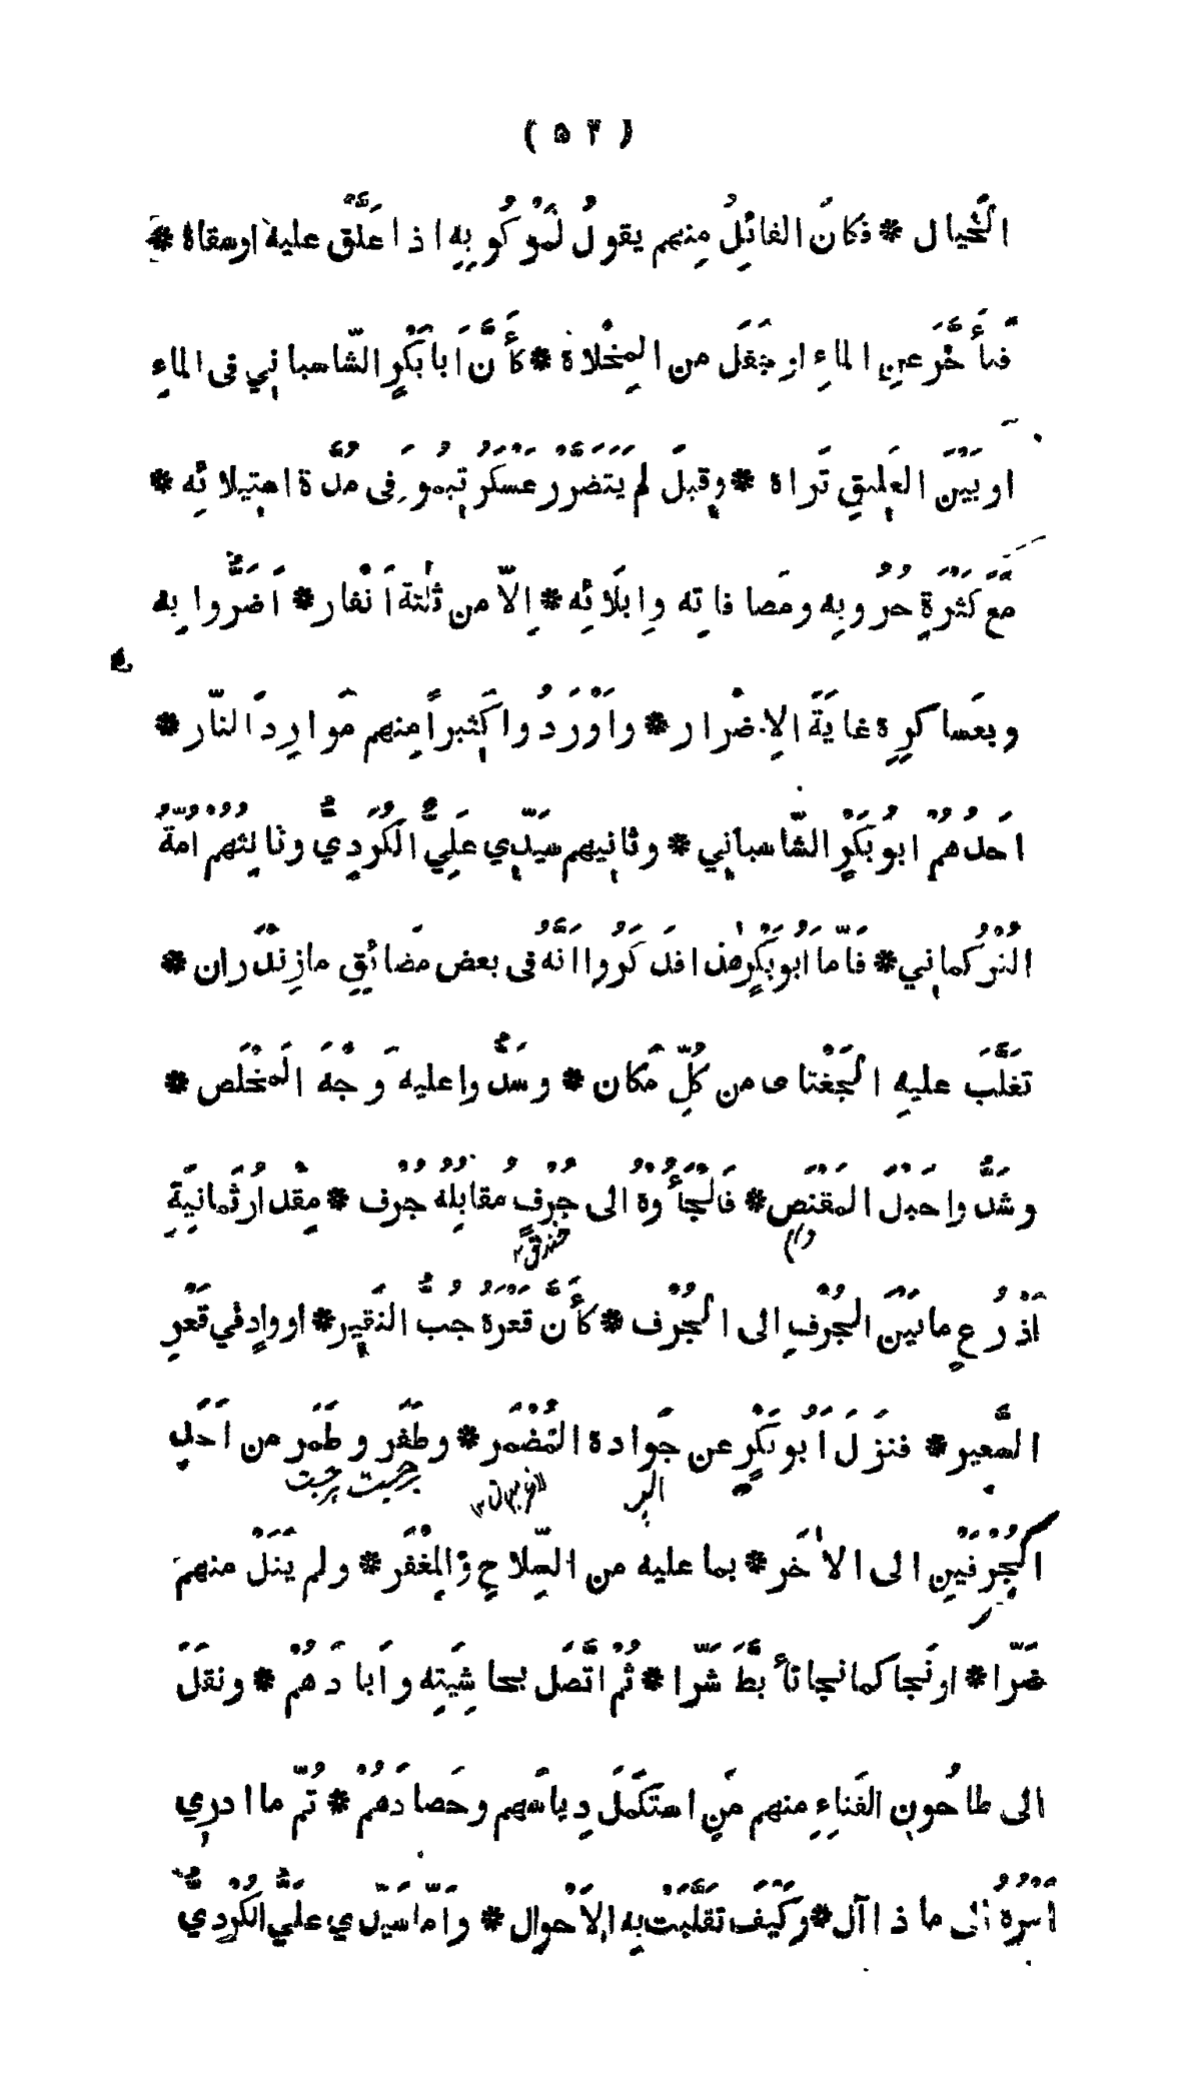 ( ٥٣ )
الخَيال * فكانَ القائِلُ مِنهم يقولُ لمَرْكُوبِه اذا عَلَّقَ عليهِ اوسقاهُ *
فتأَخَّرَ عنِ الماءِ او جَفَلَ من المِخْلاةِ * كأَنَّ اَبا بَكْرٍ الشّاسباني في الماءِ
او بَيْنَ العَلِيقِ تَراهُ * وقِيلَ لم يَتَضَرَّرْ عسكَرُ تيمورَ في مُدّةِ استِيلائِه *
مَعَ كَثْرَةِ حُرُوبِه ومَصافاتِه واِبلَائِه * اِلّا من ثَلٰثةِ اَنْفار * اَضَرُّوا بِه
وبعَساكِرِه غايَةَ الاِضْرار * واَوْرَدُوا كَثيراً مِنهم مَوارِدَ النّار *
اَحَدُهُمْ ابُو بَكْرٍ الشّاسباني * وثانيهم سَيِّدي عَلِيٌّ الكُرْدِيُّ وثالِثُهُمْ اُمّةُ
التُرْكماني * فَاَمّا اَبُو بَكْرٍ هٰذا فذَكَرُوا اَنّهُ في بعضِ مَضائقِ مازِنْدَران *
تَغَلَّبَ عليهِ الجَغْتاى من كُلِّ مَكان * وسَدُّوا عليهِ وَجْهَ المَخْلَص *
وشَدُّوا حَبْلَ المَقْنَص * فَالْجَأُوْهُ الى جُرْفٍ مُقابِلُهُ جُرْف * مِقْدارُ ثَمانِيَةِ
خندق
اَذْرُعٍ ما بَيْنَ الجُرْفِ الى الجُرْف * كأَنَّ قعرَهُ جُبُّ النَقير * او وادٍ في قَعْرِ
السَّعير * فنزَلَ اَبُو بَكْرٍ عن جَوادِهِ المُضْمَر * وطَفَرَ وطَمَرَ من اَحَدِ
برجست برجست
الجُرْفَيْنِ الى الاٰخَر * بما عليه من السِّلاحِ والمِغْفَر * ولم يَنَلْ منهم
ضَرّا * او نَجا كما نجا تأَبَّطَ شَرّا * ثُمّ اتَّصَلَ بحاشِيَتِه واَبادَهُمْ * ونقَلَ
الى طاحُونِ الفَناءِ مِنهم مَنِ استَكْمَلَ دِياسَهم وحَصادَهُمْ * ثُمّ ما ادري
اَمْرُهُ اِلى ماذا آل * وكَيْفَ تقلَّبَتْ بِه الاَحْوال * واَمّا سَيّدي عَلِيٌّ الكُرْدِيُّ